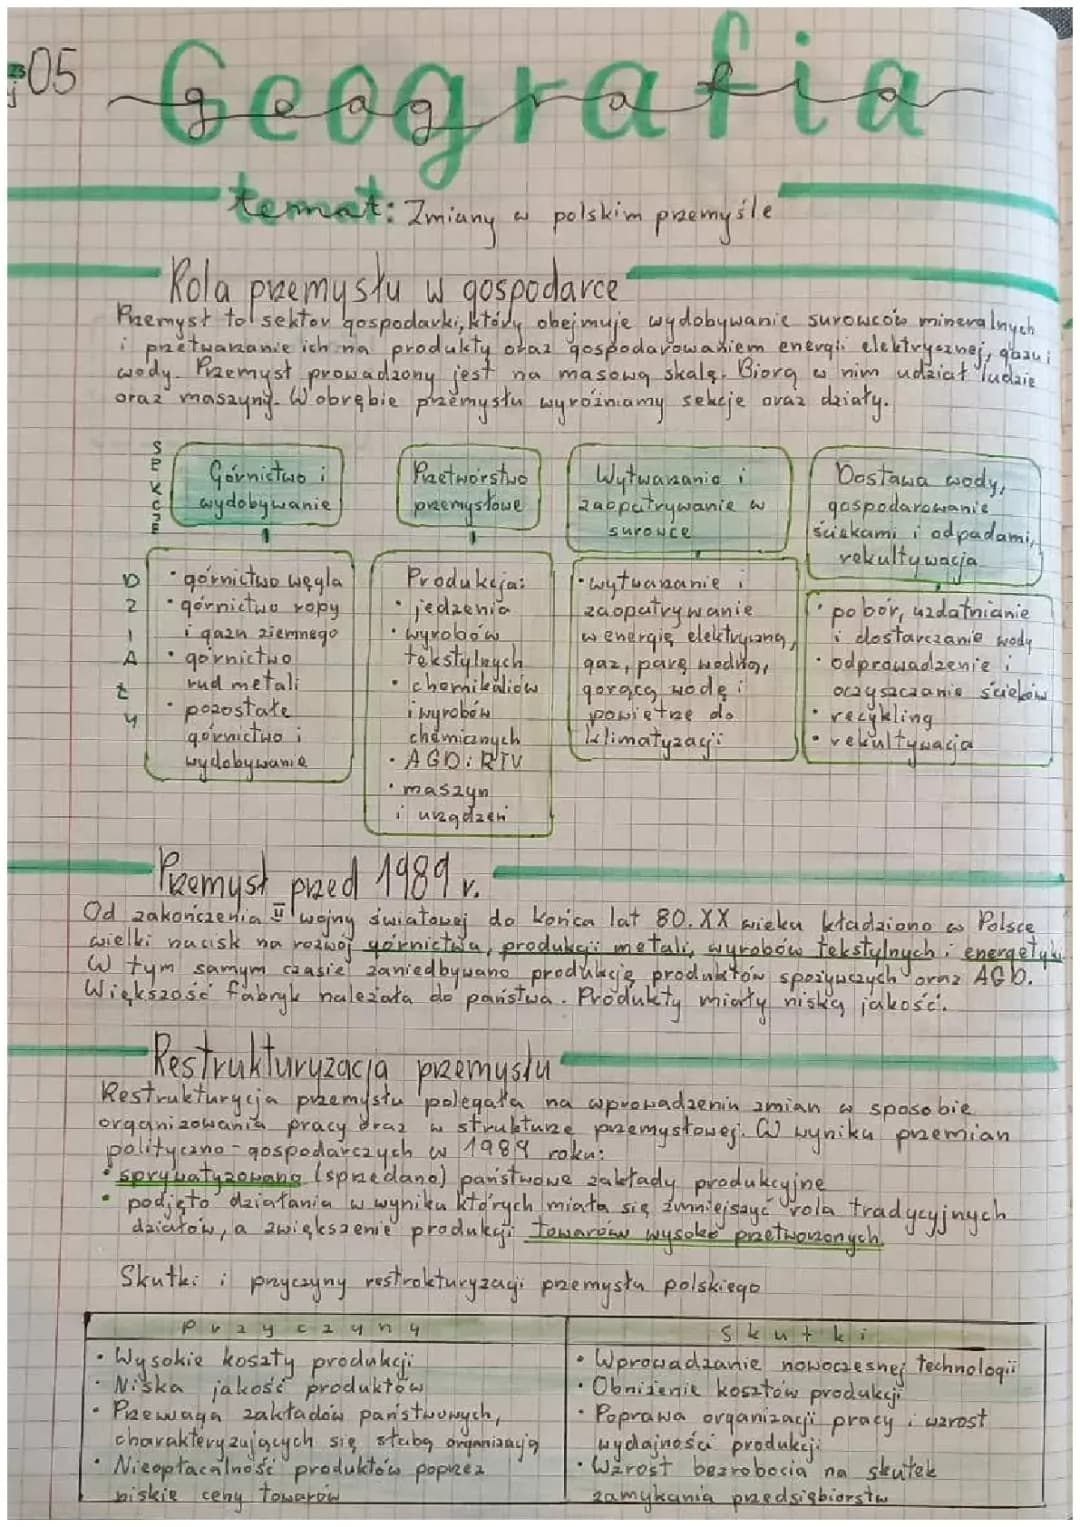 05
Geografia
geografia
temat: Zmiany w polskim przemyśle
Rola przemysłu w gospodarce
Przemysł to sektor gospodarki, który obejmuje wydobywanie surowców mineralnych
i przetwarzanie ich na produkty oraz gospodarowaniem energii elektrycznej, gazu i
wody. Przemysł prowadzony jest na masową skalę. Biorą w nim udział ludzie
oraz maszyny. W obrębie przemysłu wyróżniamy sekcje oraz działy.
SEKCJE
Górnictwo i
wydobywanie
Przetwórstwo
przemysłowe
Wytwarzanie i
zaopatrywanie w
surowce
Dostawa wody,
gospodarowanie
ściekami i odpadami,
rekultywacja
DZIAŁY
• górnictwo węgla
• górnictwo ropy
i gazu ziemnego
• górnictwo
rud metali
• pozostałe
górnictwo i
wydobywanie
Produkcja:
• jedzenia
• wyrobów
tekstylnych
• chemikaliów
i wyrobów
chemicznych
• AGD i RTV
• maszyn
i urządzeń
• wytwarzanie i
zaopatrywanie
w energię elektryczną,
gaz, parę wodną,
gorącą wodę i
powietrze do
klimatyzacji
• pobór, uzdatnianie
i dostarczanie wody
• odprowadzenie i
oczyszczanie ścieków
• recykling
• rekultywacja
Przemysł przed 1989 r.
Od zakończenia II wojny światowej do końca lat 80. XX wieku kładziono w Polsce
wielki nacisk na rozwój górnictwa, produkcji metali, wyrobów tekstylnych i energetyki
W tym samym czasie zaniedbywano produkcję produktów spożywczych oraz AGD.
Większość fabryk należała do państwa. Produkty miały niską jakość.
Restrukturyzacja przemysłu
Restrukturycja przemysłu polegała na wprowadzeniu zmian w sposobie
organizowania pracy oraz w strukturze przemysłowej. W wyniku przemian
polityczno-gospodarczych w 1989 roku:
• sprywatyzowano (sprzedano) państwowe zakłady produkcyjne
• podjęto działania w wyniku których miała się zmniejszyć rola tradycyjnych
działów, a zwiększenie produkcji towarów wysoko przetworzonych.
Skutki i przyczyny restrukturyzacji przemysłu polskiego
Przyczyny
Skutki
• Wysokie koszty produkcji
• Niska jakość produktów
• Przewaga zakładów państwowych,
charakteryzujących się słabą organizacją
• Nieopłacalność produktów poprzez
niskie ceny towarów
• Wprowadzanie nowoczesnej technologii
• Obniżenie kosztów produkcji
• Poprawa organizacji pracy i wzrost
wydajności produkcji
• Wzrost bezrobocia na skutek
zamykania przedsiębiorstw